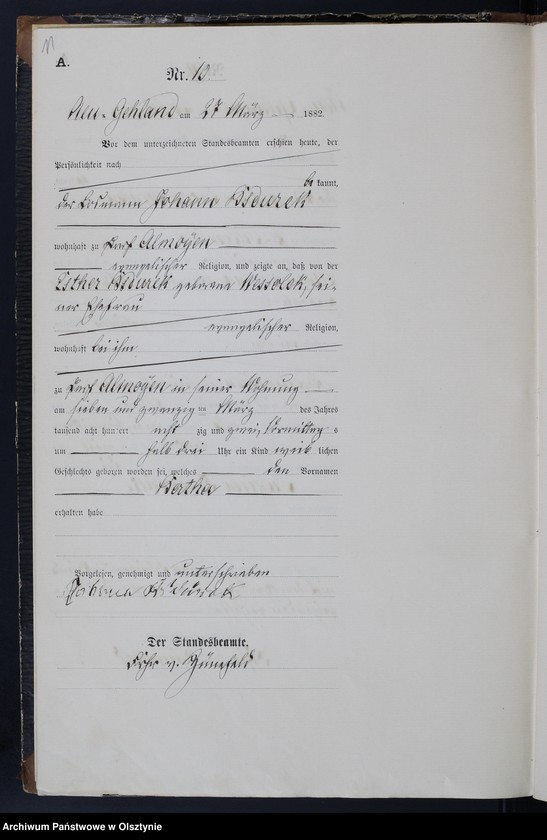 A.
Nr. 10.
Alt-Gehland am 27 März 1882.
Vor dem unterzeichneten Standesbeamten erschien heute, der
Persönlichkeit nach
be kannt,
der Losmann Johann
wohnhaft zu Dorf Almoyen
evangelischer Religion, und zeigte an, daß von der
Esther geborene Wessolek, sei-
ner Ehefrau
evangelischer Religion,
wohnhaft bei ihm
zu Dorf Almoyen in seiner Wohnung
am sieben und zwanzig ten März des Jahres
tausend acht hundert acht zig und zwei, Vormittag s
um halb drei Uhr ein Kind weib lichen
Geschlechts geboren worden sei, welches den Vornamen
Bertha
erhalten habe
Vorgelesen, genehmigt und unterschrieben
Der Standesbeamte.
Archiwum Państwowe w Olsztynie